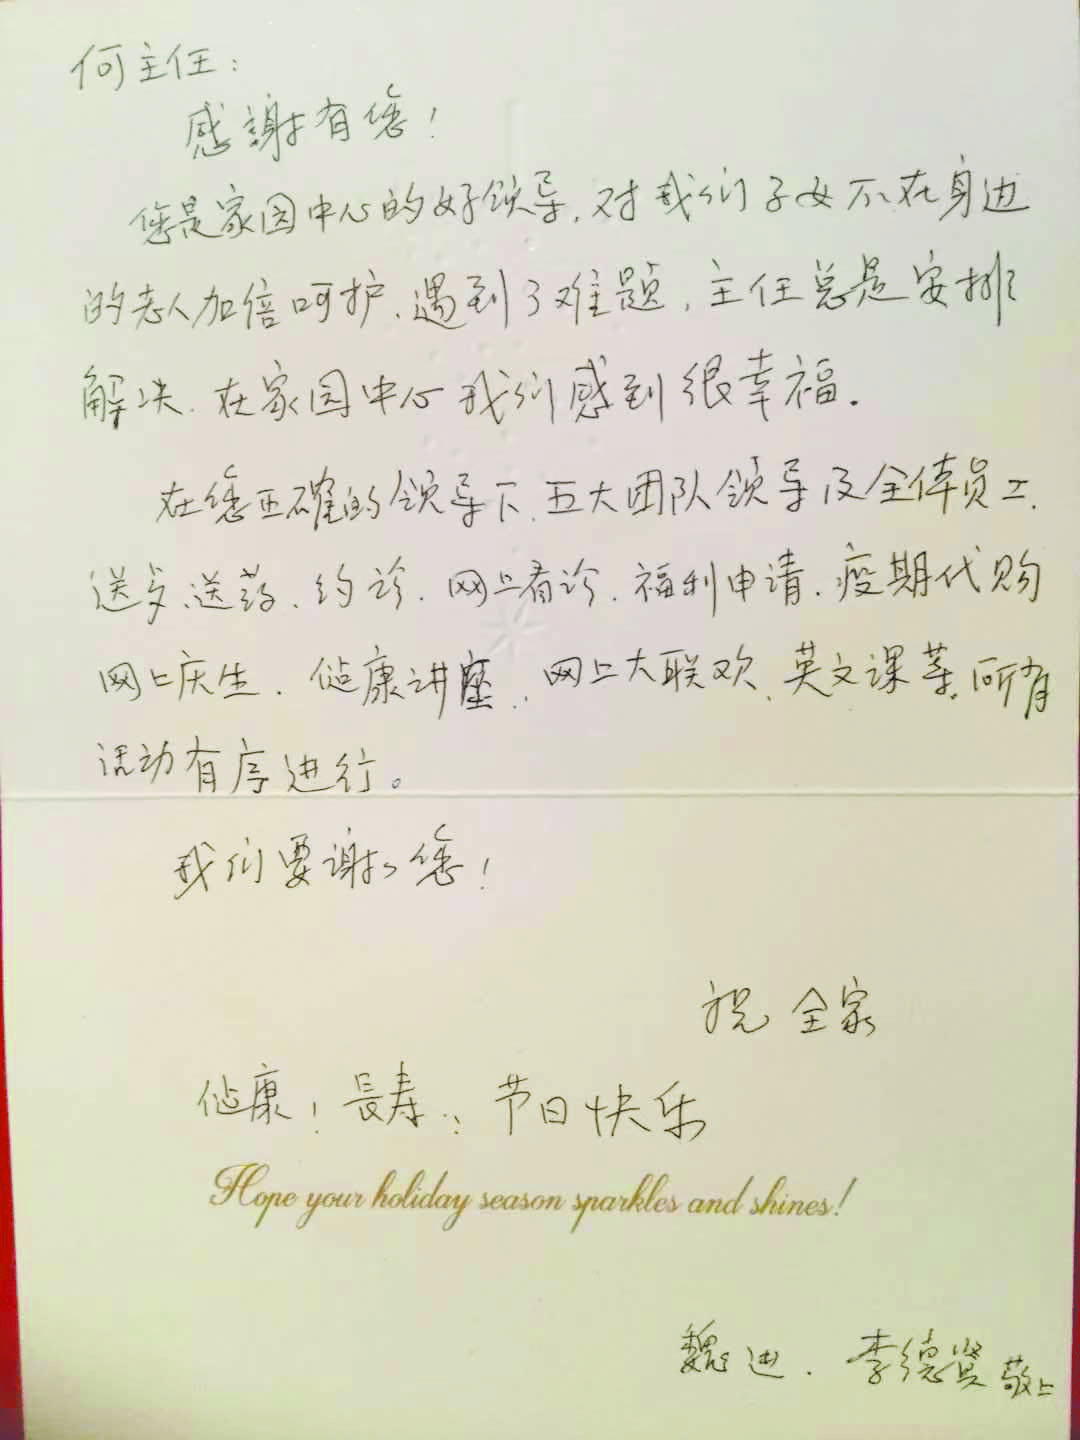 何主任：
感謝有您！
您是家园中心的好领导，对我们子女不在身边
的老人加倍呵护、遇到了难题，主任总是安排
解决、在家园中心我们感到很幸福。
在您正確的领导下、五大团队领导及全体员工、
送歺、送药、约诊、网上看诊、福利申请、疫期代购
网上庆生、健康讲座、网上大联欢、英文课等、所有
活动有序进行。
我们要谢谢您！
祝 全家
健康！長寿！节日快乐
Hope your holiday season sparkles and shines!
魏 进、李德贤 敬上